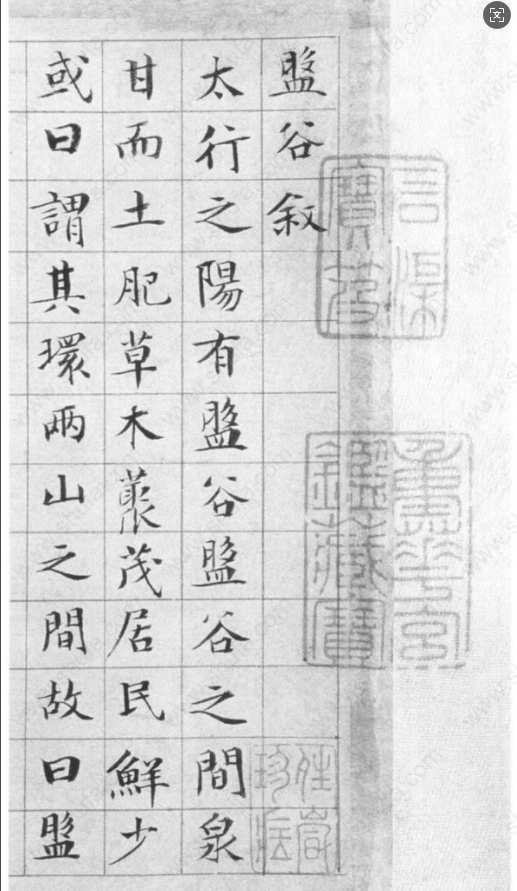 石渠
寶笈
重華宮
鑑藏寶
盤谷叙
太行之陽有盤谷盤谷之間泉
甘而土肥草木藂茂居民鮮少
或曰謂其環兩山之間故曰盤